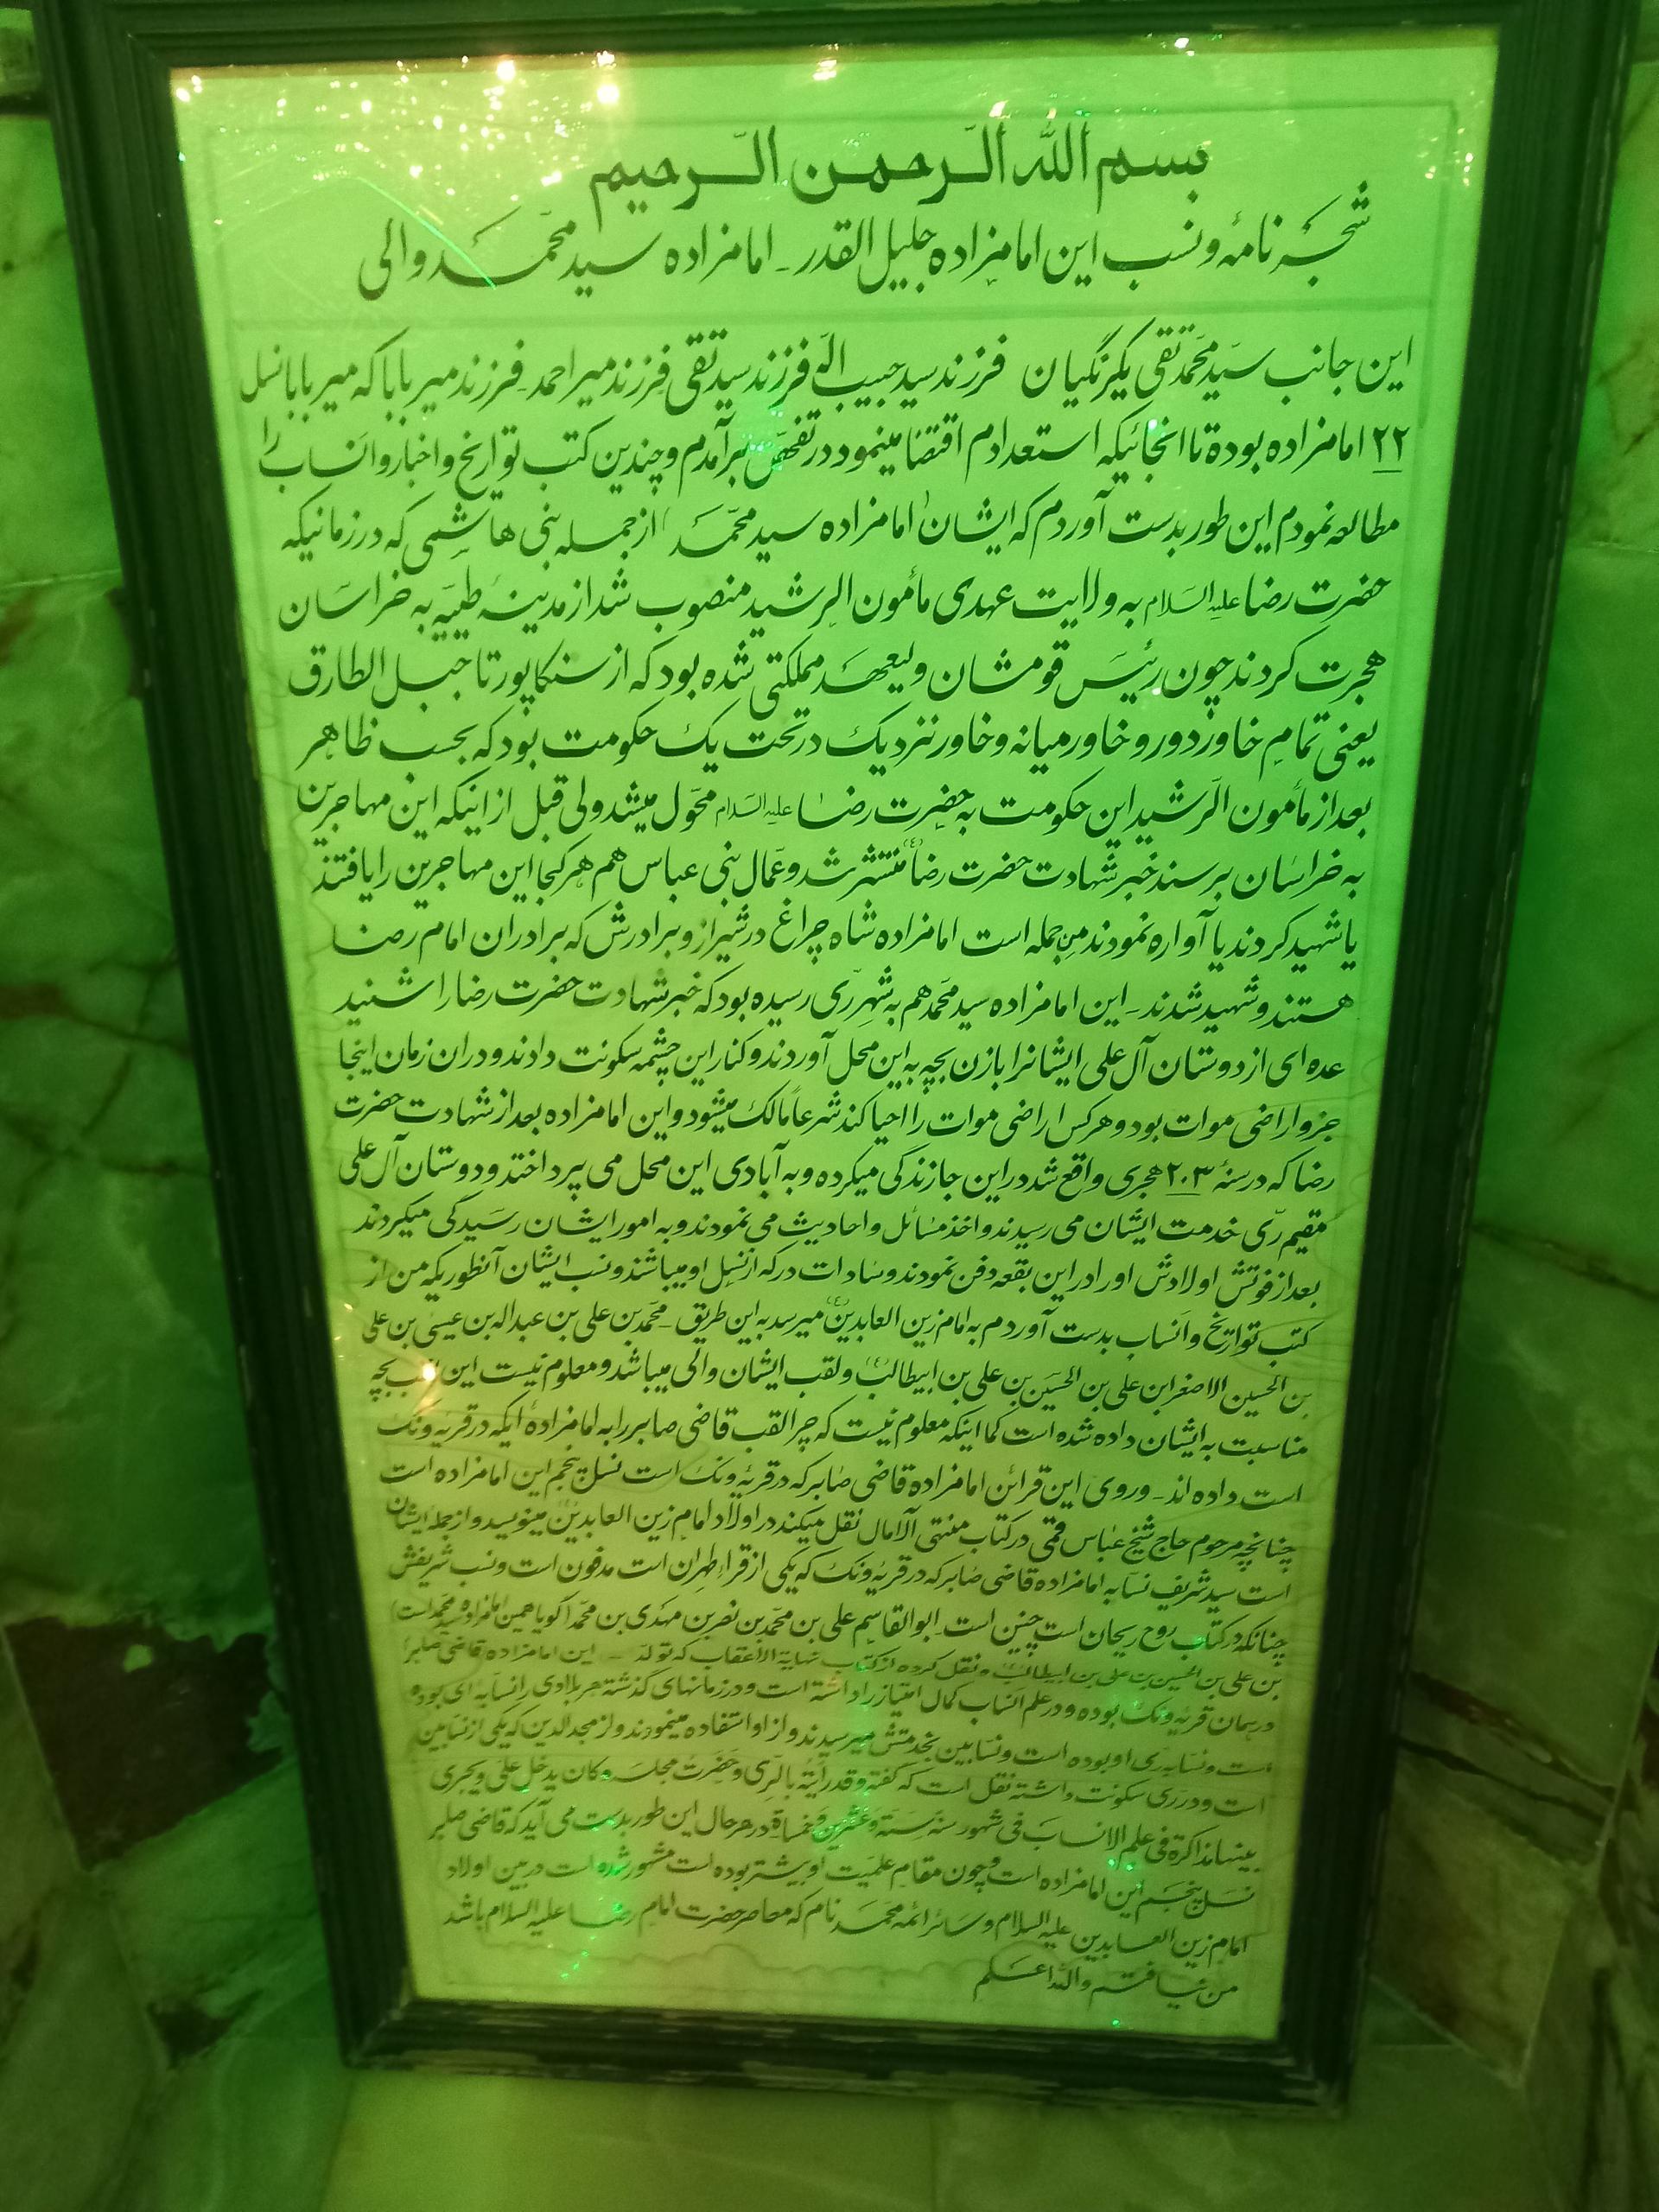 بسم الله الرحمن الرحیم
شجره نامهٔ و نسب این امامزاده جلیل القدر ـ امامزاده سید محمد والی
این جانب سید محمد تقی یکرنگیان فرزند سید حبیب اله فرزند سید تقی فرزند میر احمد فرزند میر بابا که میر بابا نسل
۲۲ امامزاده بوده تا انجائیکه استعدادم اقتضا مینمود در تفحص برآمدم و چندین کتب تواریخ و اخبار و انساب را
مطالعه نمودم این طور بدست آوردم که ایشان امامزاده سید محمد از جمله بنی هاشمی که در زمانیکه
حضرت رضا علیه السلام به ولایت عهدی مأمون الرشید منصوب شد از مدینهٔ طیبه به خراسان
هجرت کردند چون رئیس قومشان ولیعهد مملکتی شده بود که از سنگاپور تا جبل الطارق
یعنی تمام خاور دور و خاور میانه و خاور نزدیک در تحت یک حکومت بود که بحسب ظاهر
بعد از مأمون الرشید این حکومت به حضرت رضا علیه السلام محول میشد ولی قبل از اینکه این مهاجرین
به خراسان برسند خبر شهادت حضرت رضا (ع) منتشر شد و عمال بنی عباس هم هر کجا این مهاجرین را یافتند
یا شهید کردند یا آواره نمودند من جمله است امامزاده شاه چراغ در شیراز و برادرش که برادران امام رضا
هستند و شهید شدند ـ این امامزاده سید محمد هم به شهر ری رسیده بود که خبر شهادت حضرت رضا را شنید
عده ای از دوستان آل علی ایشانرا با زن بچه به این محل آوردند و کنار این چشمه سکونت دادند و در ان زمان اینجا
جزو اراضی موات بود و هر کس اراضی موات را احیا کند شرعاً مالک میشود و این امامزاده بعد از شهادت حضرت
رضا که در سنهٔ ۲۰۳ هجری واقع شد در این جا زندگی میکرده و به آبادی این محل می پرداختد و دوستان آل علی
مقیم ری خدمت ایشان می رسیدند و اخذ مسائل و احادیث می نمودند و به امور ایشان رسیدگی میکردند
بعد از فوتش اولادش او را در این بقعه دفن نمودند و سادات درکه از نسل او میباشند و نسب ایشان آنطوریکه من از
کتب تواریخ و انساب بدست آوردم به امام زین العابدین (ع) میرسد به این طریق ـ محمد بن علی بن عبداله بن عیسی بن علی
بن الحسین الاصغر ابن علی بن الحسین بن علی بن ابیطالب (ع) و لقب ایشان والی میباشد و معلوم نیست این لقب بچه
مناسبت به ایشان داده شده است کما اینکه معلوم نیست که چرا لقب قاضی صابر را به امامزادهٔ ایکه در قریهٔ ونک
است داده اند ـ و روی این قرائن امامزاده قاضی صابر که در قریهٔ ونک است نسل پنجم این امامزاده است
چنانچه مرحوم حاج شیخ عباس قمی در کتاب منتهی الامال نقل میکند در اولاد امام زین العابدین (ع) مینویسد و از جمله ایشان
است سید شریف نسابه امامزاده قاضی صابر که در قریهٔ ونک که یکی از قراء طهران است مدفون است و نسب شریفش
چنانکه در کتاب روح ریحان است چنین است ابوالقاسم علی بن محمد بن نصر بن مهدی بن محمد (گویا همین امامزاده سید محمد است)
بن علی بن الحسین بن علی بن ابیطالب و نقل کرده از کتاب نهایة الاعقاب که تولد این امامزاده قاضی صابر
در همان قریهٔ ونک بوده و در علم انساب کمال امتیاز را داشته است و در زمانهای گذشته هر بلادی را نسابه ای بوده
است و نسابه ری او بوده است و نسابین بخدمتش میرسیدند و از او استفاده مینمودند و از مجدالدین که یکی از نسابین
است و در ری سکونت داشته نقل است که گفته و قد رایته بالری و حضرت مجلسه و کان یدخل علی و یجری
بیننا مذاکرة فی علم الانساب فی شهور سنه ستة و عشرین و خمسمأة در هر حال این طور بدست می آید که قاضی صابر
نسل پنجم این امامزاده است و چون مقام علمیت او بیشتر بوده است مشهور شده است در بین اولاد
امام زین العابدین علیه السلام و سائر ائمه محمد نام که معاصر حضرت امام رضا علیه السلام باشد
من نیافتم والله اعلم